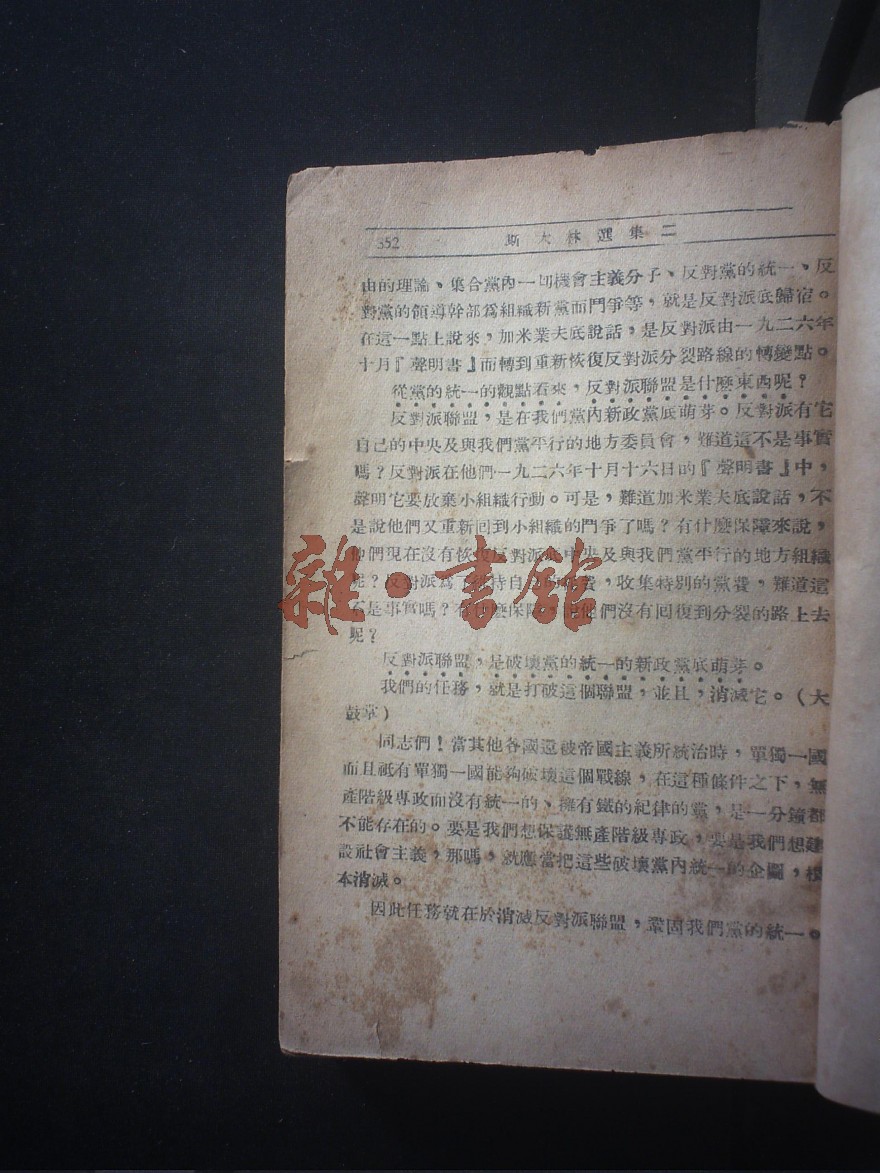 352 斯大林選集二
由的理論、集合黨內一切機會主義分子、反對黨的統一、反
對黨的領導幹部爲組織新黨而鬥爭等，就是反對派底歸宿。
在這一點上說來，加米業夫底說話，是反對派由一九二六年
十月『聲明書』而轉到重新恢復反對派分裂路線的轉變點。
從黨的統一的觀點看來，反對派聯盟是什麼東西呢？
反對派聯盟，是在我們黨內新政黨底萌芽。反對派有它
自己的中央及與我們黨平行的地方委員會，難道這不是事實
嗎？反對派在他們一九二六年十月十六日的『聲明書』中，
聲明它要放棄小組織行動。可是，難道加米業夫底說話，不
是說他們又重新回到小組織的鬥爭了嗎？有什麼保障來說，
他們現在沒有恢復反對派底中央及與我們黨平行的地方組織
呢？反對派爲了維持自己的經費，收集特別的黨費，難道這
不是事實嗎？有什麼保障，說他們沒有回復到分裂的路上去
呢？
反對派聯盟，是破壞黨的統一的新政黨底萌芽。
我們的任務，就是打破這個聯盟，並且，消滅它。（大
鼓掌）
同志們！當其他各國還被帝國主義所統治時，單獨一國
而且祇有單獨一國能夠破壞這個戰線，在這種條件之下，無
產階級專政而沒有統一的、擁有鐵的紀律的黨，是一分鐘都
不能存在的。要是我們想保護無產階級專政，要是我們想建
設社會主義，那嗎，就應當把這些破壞黨內統一的企圖，根
本消滅。
因此任務就在於消滅反對派聯盟，鞏固我們黨的統一。
雜·書館